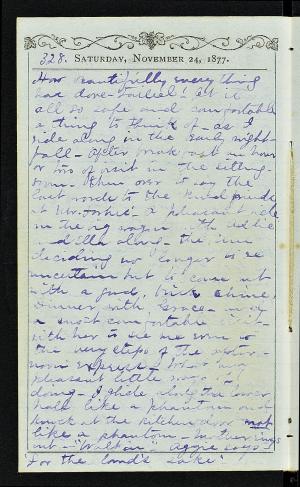 328. SATURDAY, NOVEMBER 24, 1877.
How beautifully everything
has done - toiled! yet it
all so safe and comfortable
a thing to think of - as I
ride along in the early night-
fall - After breakfast an hour
or two of visit in the sitting-
room. Then over to say the
last words to the kind friends
at Mr. - a pleasant ride
in the wagon with Addie
and Ella - the sun
deciding no longer to be
uncertain but to come out
with a good, brisk shine.
Dinner with Grace - and
a most comfortable visit -
with her to see me even to
the very steps of the
express - What a
pleasant little way
- I glide along the lower
hall like a phantom and
knock at the kitchen door not
like a phantom - Mother sings
out - "Walk in" Aggie says
"For the land's sake!"